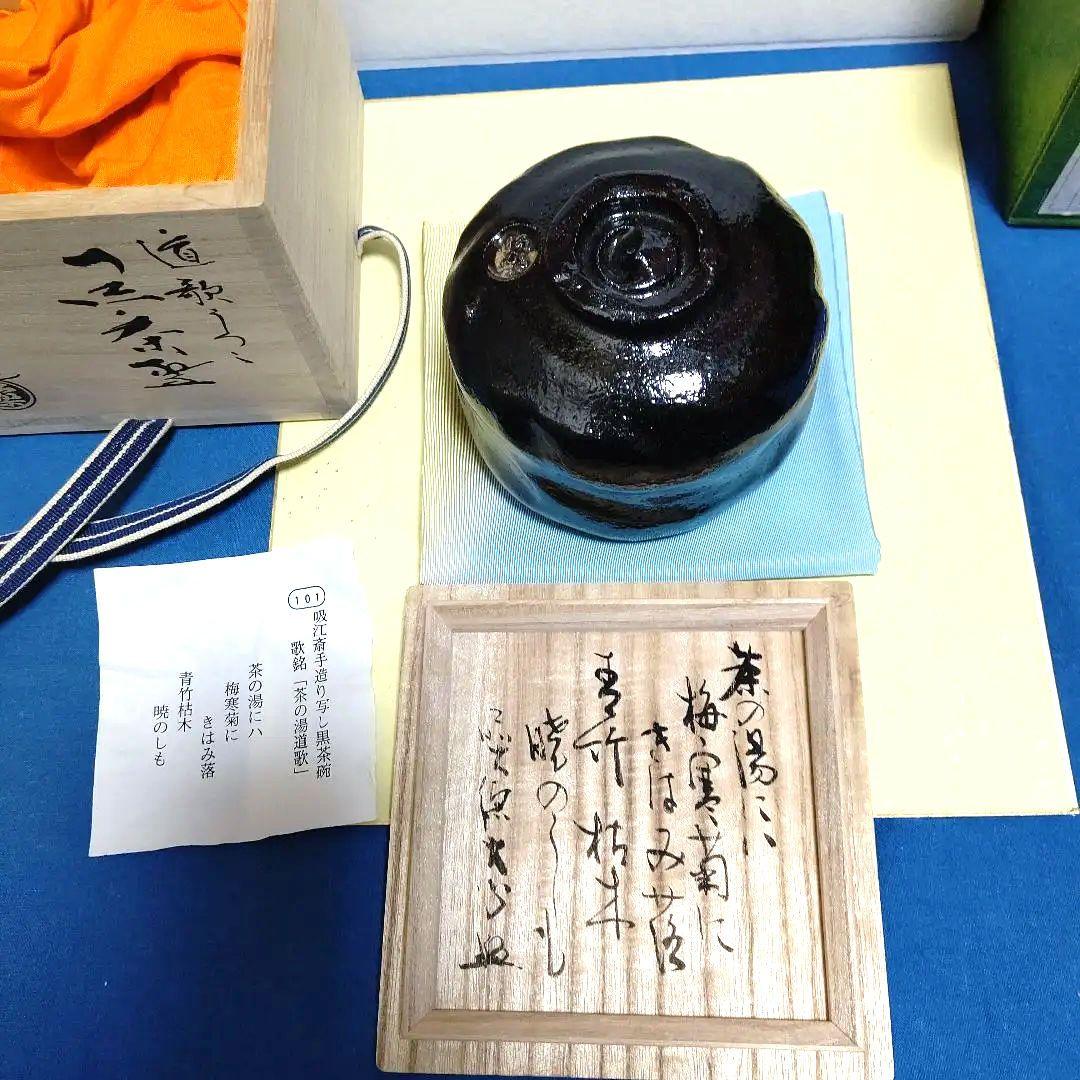 道歌うつし
茶盌
101
吸江斎手造り写し黒茶碗
歌銘「茶の湯道歌」
茶の湯にハ
梅寒菊に
きはみ落
青竹枯木
暁のしも
茶の湯ニハ
梅寒菊に
きはみ落
青竹枯木
暁のしも